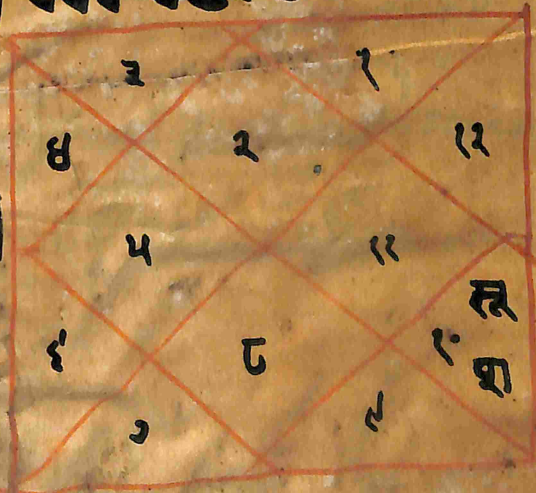 ३ १
४ २ १२
५ ११
६ ८ १०
शु
७ ९